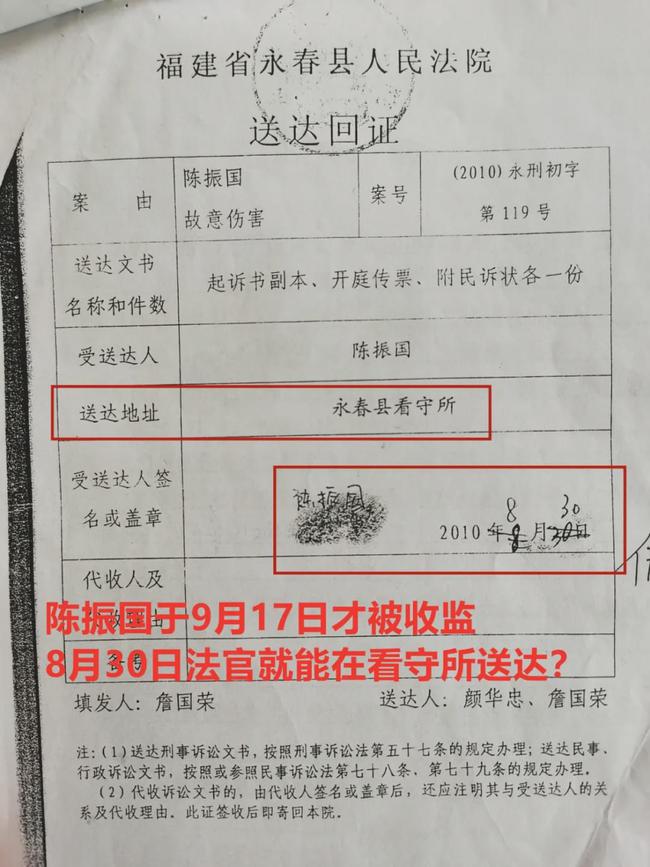 福建省永春县人民法院
送达回证
案 由
陈振国
故意伤害
案号
(2010)永刑初字
第119号
送达文书
名称和件数
起诉书副本、开庭传票、附民诉状各一份
受送达人
陈振国
送达地址
永春县看守所
受送达人签
名或盖章
陈振国
8 30
2010年8月30日
代收人及
代收理由
陈振国于9月17日才被收监
8月30日法官就能在看守所送达?
填发人:詹国荣
送达人:颜华忠、詹国荣
注:(1)送达刑事诉讼文书,按照刑事诉讼法第五十七条的规定办理;送达民事、
行政诉讼文书,按照或参照民事诉讼法第七十八条、第七十九条的规定办理。
(2)代收诉讼文书的,由代收人签名或盖章后,还应注明其与受送达人的关
系及代收理由。此证签收后即寄回本院。